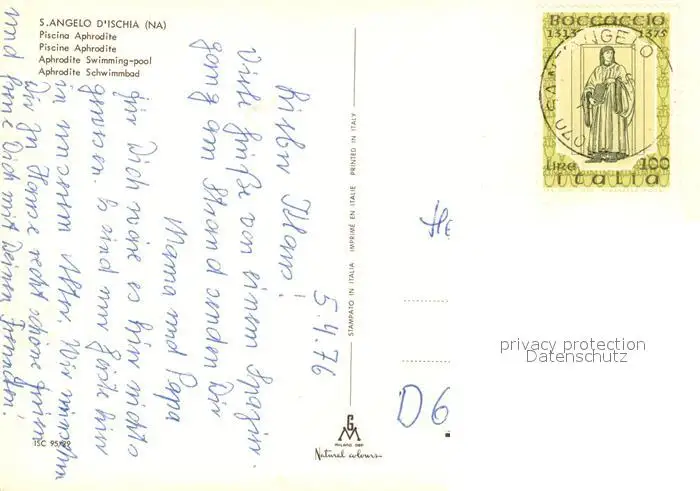 S.ANGELO D'ISCHIA (NA)
Piscina Aphrodite
Piscine Aphrodite
Aphrodite Swimming-pool
Aphrodite Schwimmbad
5.4.76
Lieber Klaus!
Viele Grüße von einem Spazier-
gang am Strand senden Dir
Mama und Papa
Für Dich wäre es hier nichts
gewesen. Es sind nur Gäste hier
in unserem Alter. Wir wünschen
Dir zu Hause recht schöne Ferien
und freue Dich mit Deinen Freunden.
ISC 95/29
STAMPATO IN ITALIA IMPRIMÉ EN ITALIE PRINTED IN ITALY
GM
MILANO DEP
Natural colours
Boccaccio
1313 1375
SANT'ANGELO
LIRE 100
italia
He
D6
privacy protection
Datenschutz